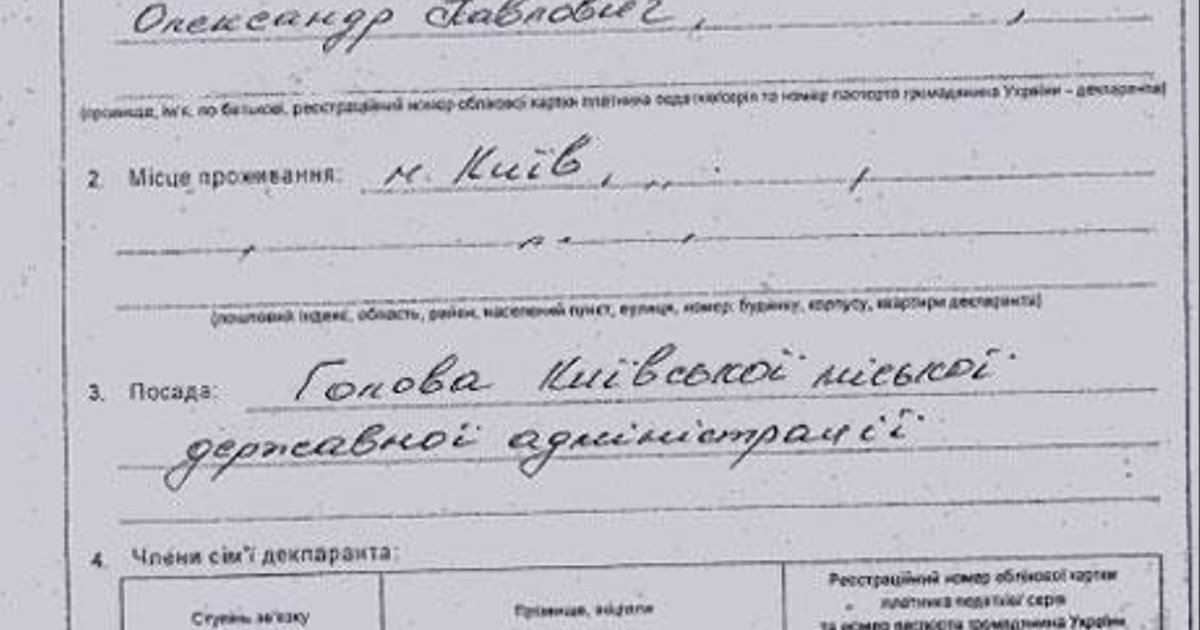 Олександр Павлович,
(прізвище, ім'я, по батькові, реєстраційний номер облікової картки платника податків/серія та номер паспорта громадянина України – декларанта)
2. Місце проживання: м. Київ,
(поштовий індекс, область, район, населений пункт, вулиця, номер: будинку, корпусу, квартири декларанта)
3. Посада: Голова Київської міської
державної адміністрації
4. Члени сім'ї декларанта:
Реєстраційний номер облікової картки
Ступінь зв'язку Прізвище, ініціали платника податків/ серія
та номер паспорта громадянина України